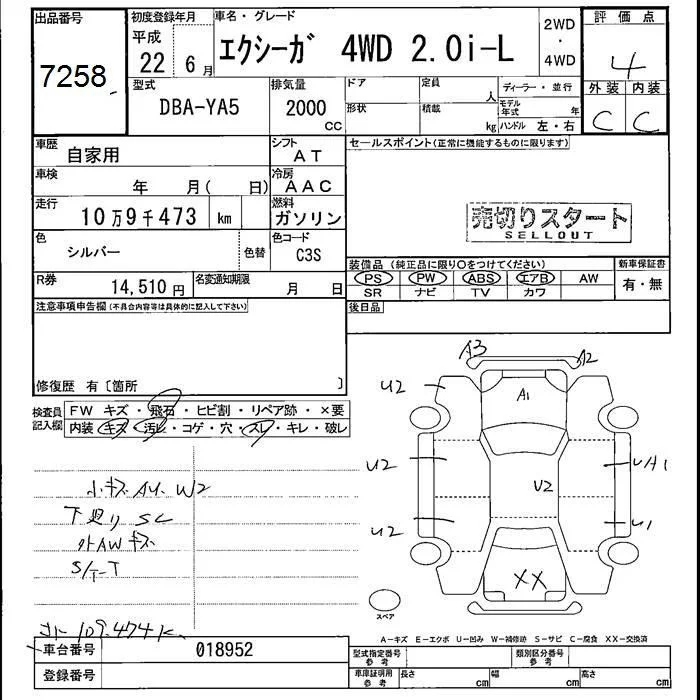 出品番号 初度登録年月 車名・グレード 評価点
7258 平成 22 6月 エクシーガ 4WD 2.0i-L 2WD・4WD 4
外装 内装
C C
型式 排気量 ドア 定員 ディーラー・並行
DBA-YA5 2000 cc 人 モデル年式 年
形状 積載 kg ハンドル 左・右
車歴 自家用 シフト AT セールスポイント(正常に機能するものに限ります)
車検 年 月( 日) 冷房 AAC
走行 10万9千473 km 燃料 ガソリン
売切りスタート
SELLOUT
色 シルバー 色替 色コード C3S
装備品(純正品に限り○をつけてください) 新車保証書
PS PW ABS エアB AW 有・無
SR ナビ TV カワ
R券 14,510円 名変通知期限 月 日
後日品
注意事項申告欄(不具合内容等は具体的に記入して下さい)
修復歴 有〔箇所 〕
検査員記入欄 FW キズ・飛石・ヒビ割・リペア跡・×要
内装・キズ・汚れ・コゲ・穴・スレ・キレ・破レ
A3 A2
U2 A1
U2 U2 UA1
U2 U1
XX
スペア
小キズ AU W2
下廻り SC
外AWキズ
S/T-T
109.474K
A-キズ E-エクボ U-凹み W-補修跡 S-サビ C-腐食 XX-交換済
車台番号 018952
登録番号
型式指定番号 参考 類別区分番号 参考
車庫証明用 参考 長さ cm 幅 cm 高さ cm